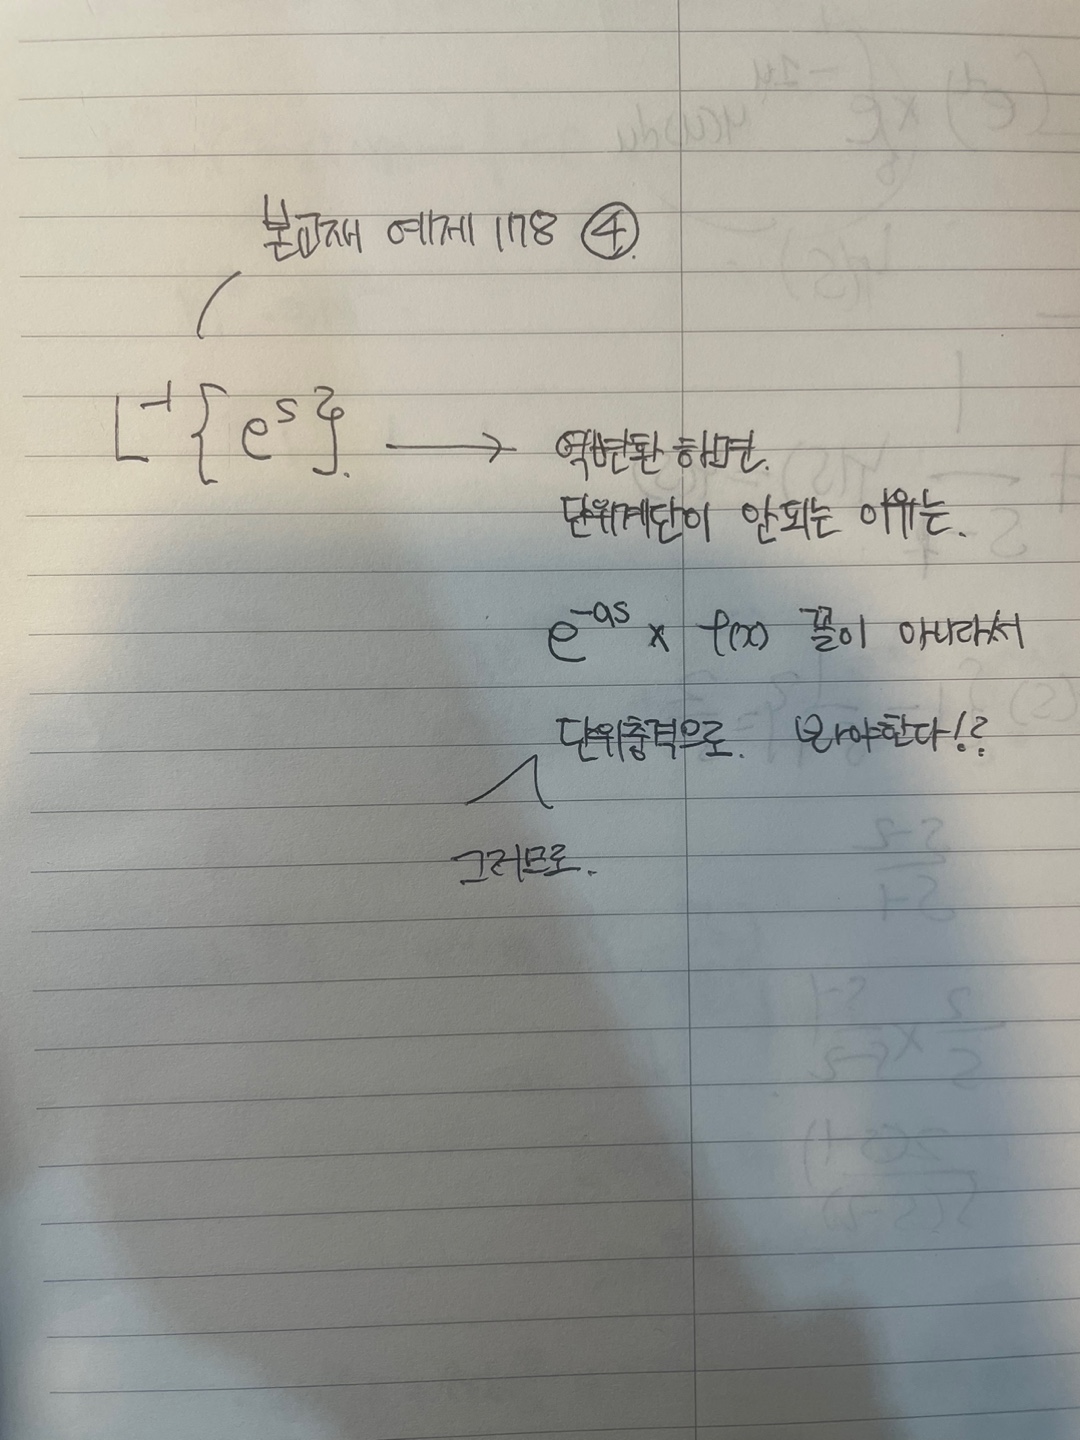 본교재 예제 178 ④.
L⁻¹{e^s}. → 역변환 하면.
단위계단이 안되는 이유는.
e^-as × f(x) 꼴이 아니라서
단위충격으로. 봐야한다!?
그러므로.